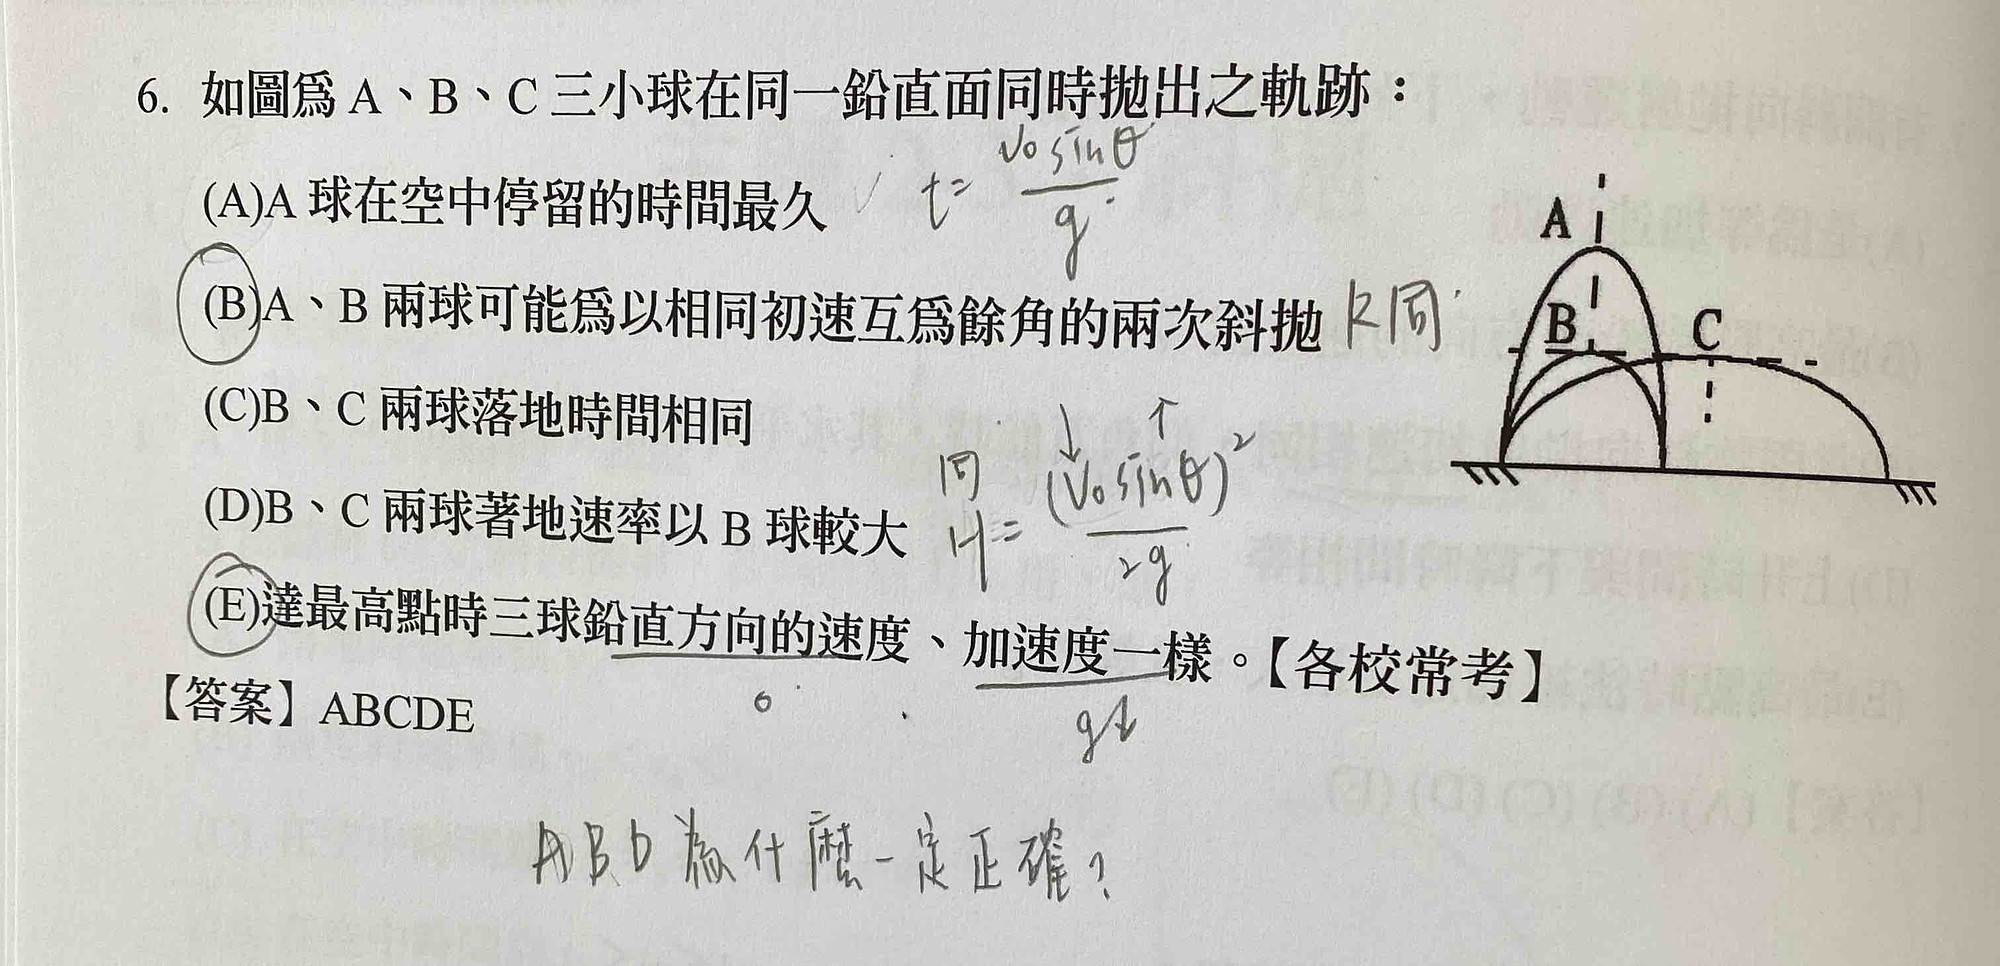 6. 如圖爲 A、B、C 三小球在同一鉛直面同時拋出之軌跡：
(A)A 球在空中停留的時間最久 ✓ t = v₀sinθ / g
(B)A、B 兩球可能爲以相同初速互爲餘角的兩次斜拋 R同
(C)B、C 兩球落地時間相同
(D)B、C 兩球著地速率以 B 球較大 同 H = (v₀sinθ)² / 2g ↓ ↑
(E)達最高點時三球鉛直方向的速度、加速度一樣。【各校常考】
0 g↓
【答案】ABCDE
ABD為什麼一定正確？
A
B
C